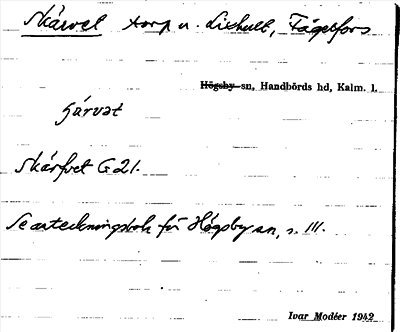 Skärvet torp u. Lixhult, Fågelfors
Högsby sn, Handbörds hd, Kalm. l.
Skärfvet G21.
Se anteckningsbok för Högsby sn, s. 111.
Ivar Modéer 1942